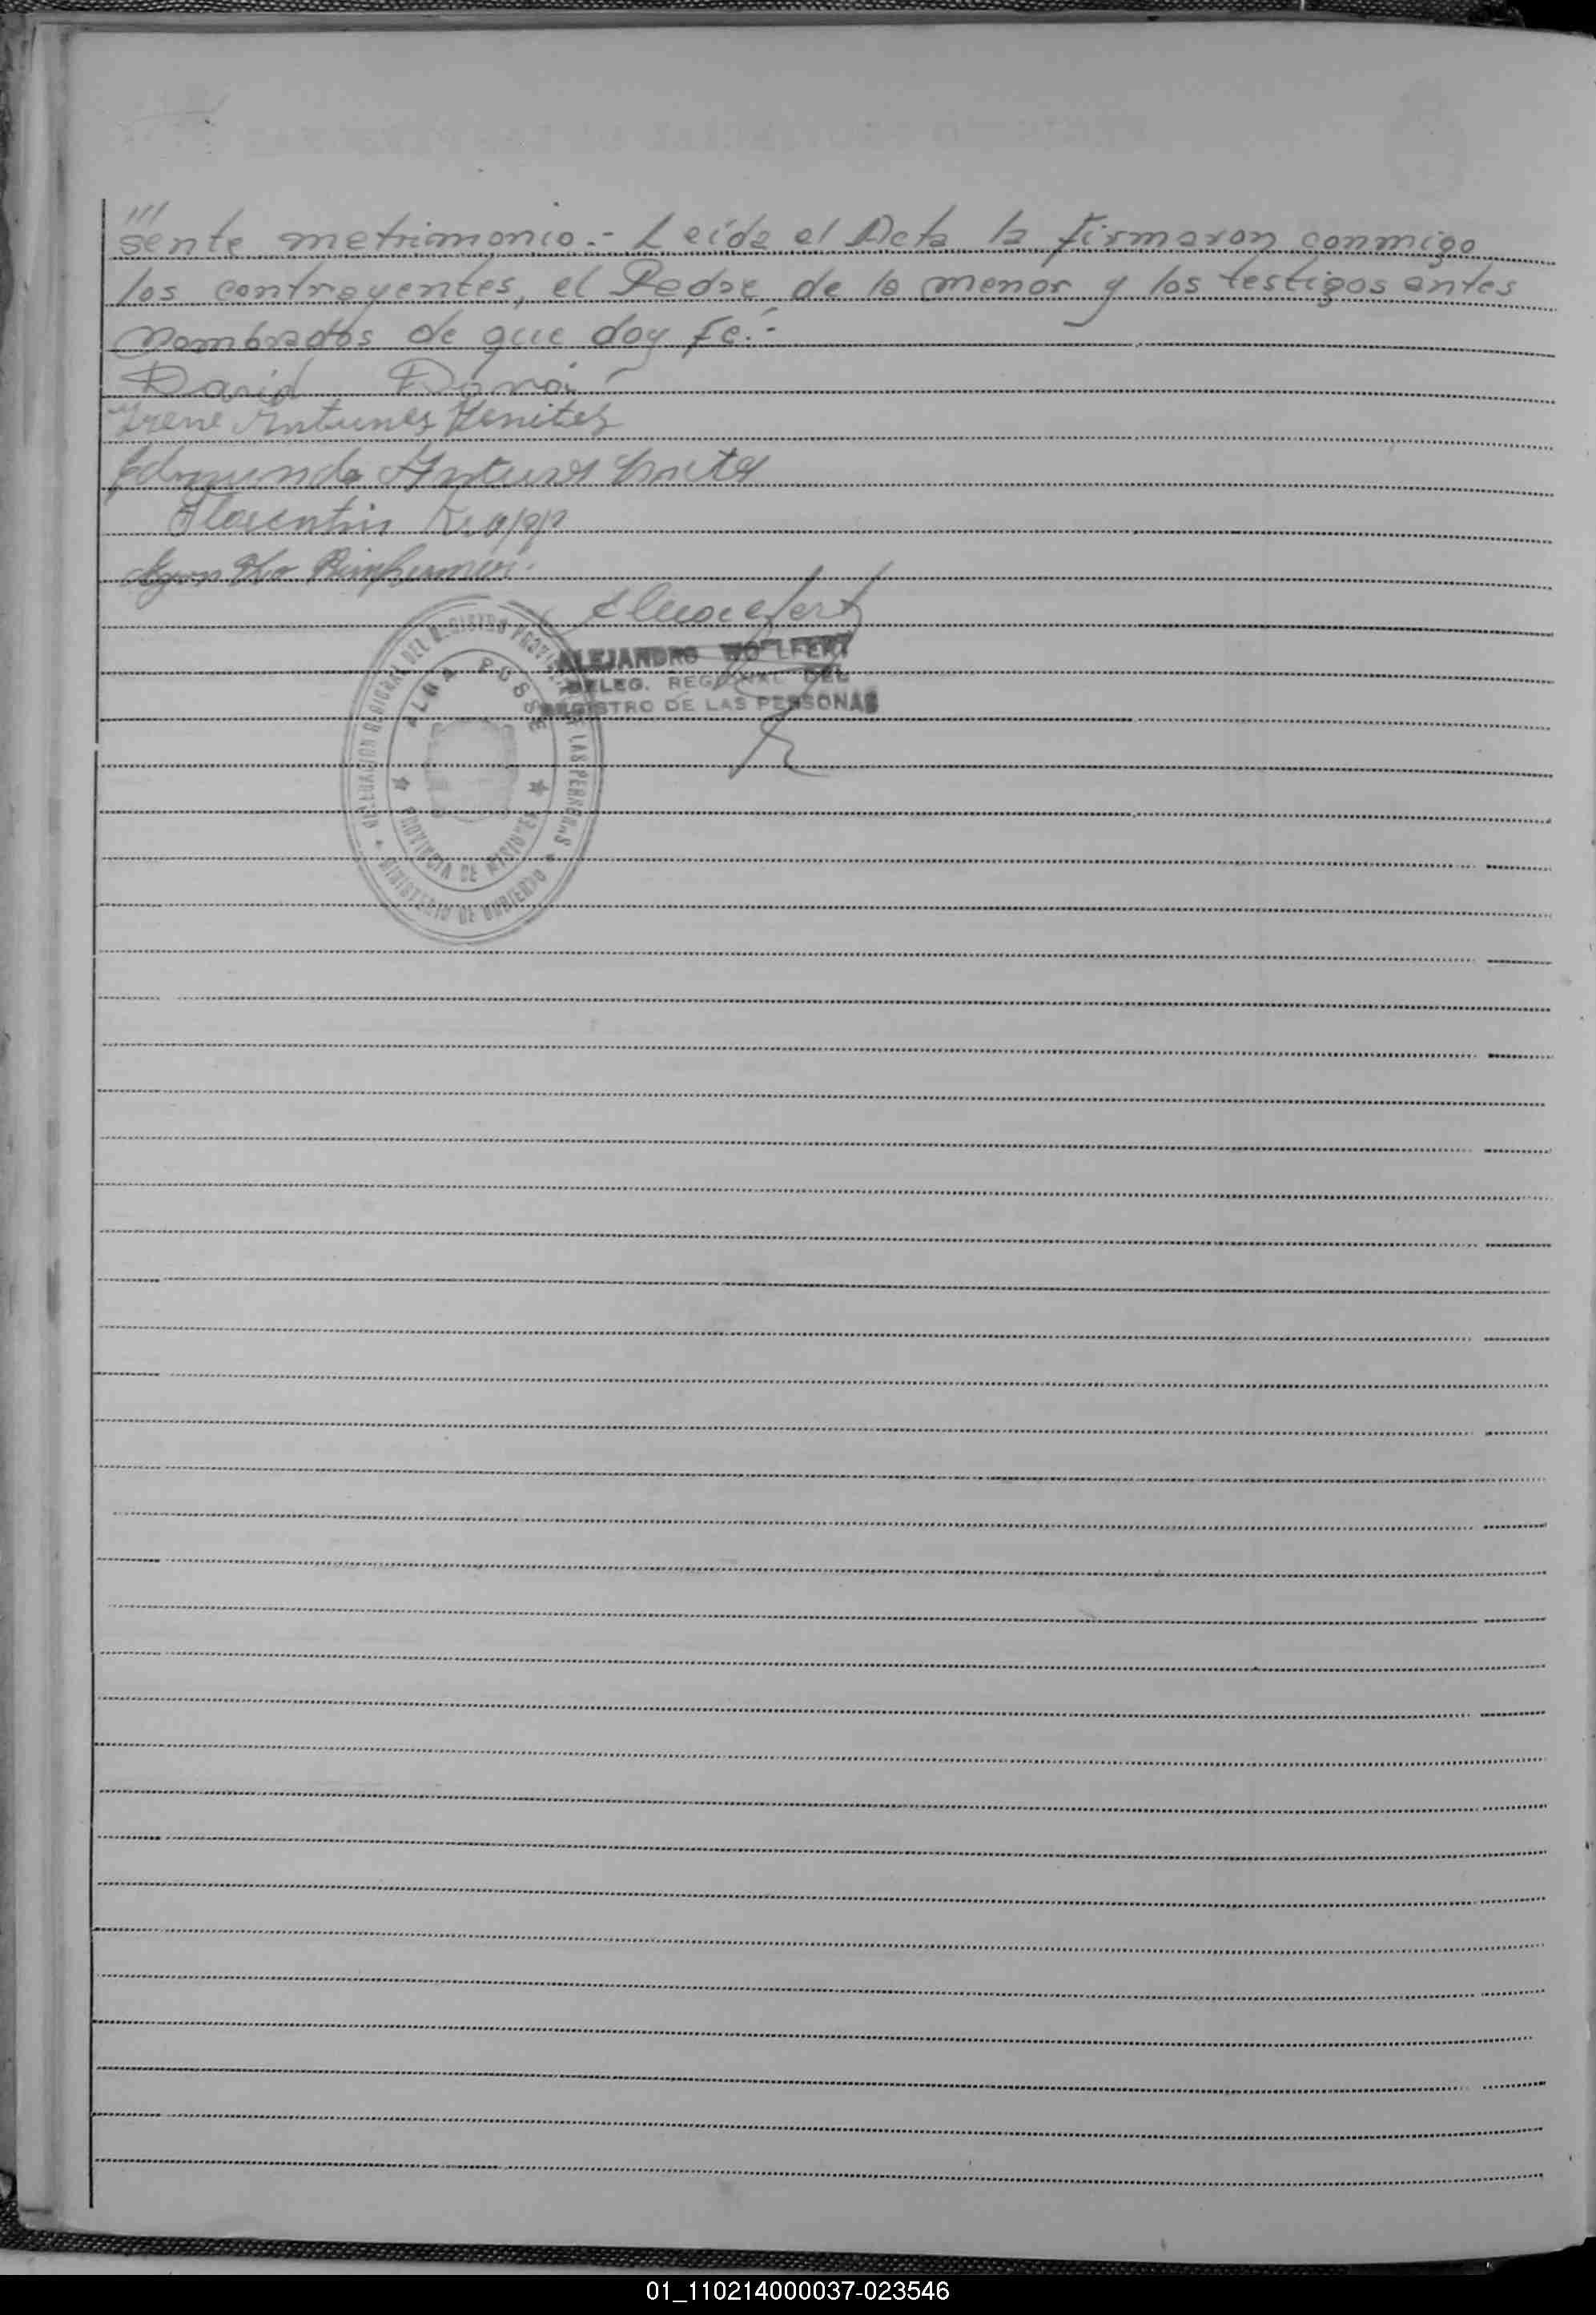 ///
sente matrimonio.- Leída el Acta la firmaron conmigo
los contrayentes, el Padre de la menor y los testigos antes
nombrados de que doy fé.-
David
Irene Antunes Benitez
Edmundo Antunes
Florentin Krapp
ALEJANDRO WOLFERT
DELEG. REGIONAL DEL
REGISTRO DE LAS PERSONAS
DELEGACION REGIONAL DEL REGISTRO PROV. DE LAS PERSONAS
ALBA POSSE
PROVINCIA DE MISIONES
MINISTERIO DE GOBIERNO
01_110214000037-023546